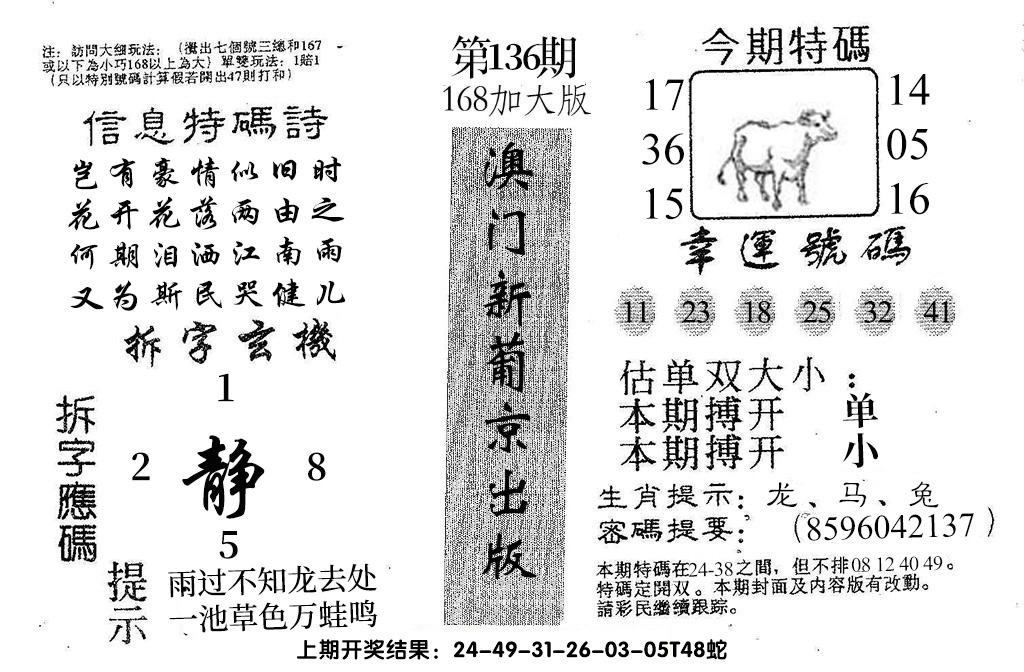 注：訪問大细玩法：（攪出七個號三總和167
或以下為小巧168以上為大）單雙玩法：1賠1
（只以特別號碼計算假若開出47則打和）
信息特碼詩
岂有豪情似旧时
花开花落两由之
何期泪洒江南雨
又为斯民哭健儿
拆字玄機
拆字應碼
1
2 静 8
5
提示
雨过不知龙去处
一池草色万蛙鸣
第136期
168加大版
澳门新葡京出版
今期特碼
17 14
36 05
15 16
幸運號碼
11 23 18 25 32 41
估单双大小：
本期搏开 单
本期搏开 小
生肖提示：龙、马、兔
密碼提要：（8596042137）
本期特碼在24-38之間，但不排08 12 40 49。
特碼定開双。本期封面及内容版有改動。
請彩民繼續跟踪。
上期开奖结果：24-49-31-26-03-05T48蛇